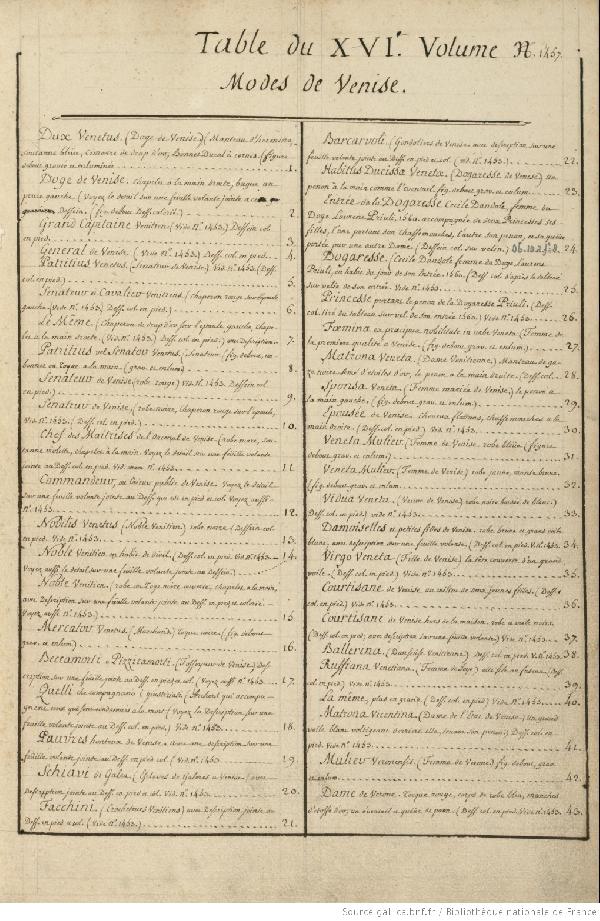 Table du XVI.e Volume N. 1457.
Modes de Venise.
Dux Venetus. (Doge de Venise) (Manteau d'hermine,
soutanne bleüe, ceinture de drap d'or, Bonnet Ducal à cornes. (figure
debout gravée et enluminée. 1.
Doge de Venise, chapeau a la main droite, bague au
pouce gauche. (Voyez le detail sur une feuille volante jointe a ce
Dessein. (fig. debout. Dess. colorié.) 2.
Grand Capitaine Venitien (Vide N.o 1453) Dessein col.
en pied. 3.
General de Venise. (Vide N.o 1453. Dess. col. en pied.) 4.
Patritius Venetus. (Senateur de Venise) (Vide N.o 1453. (Dess.
col. en pied.) 5.
Senateur ô Cavalier Venitiens (chaperon rouge sur l'epaule
gauche. (Vide n.o 1453) Dess. col. en pied.) 6.
Le Même. (Chaperon de drap d'or sur l'epaule gauche, chapeau
à la main droite. (Vide n.o 1453.) Dess. col. en pied.) avec Description. 7.
Patritius vel Senator Venetus. (Senateur) (fig. debout,
la main. (grav. et enlum.) 8.
Senateur de Venise (robe rouge) Vide n.o 1453. Dessein col.
en pied. 9.
Senateur de Venise. (robe noire, chaperon rouge sur l'epaule,
Vide n.o 1453.) (Dess. col. en pied.) 10.
Chef des Maitrises de l'Arcenal de Venise. (robe noire, sou-
tanne violette, chapeau à la main. Voyez le detail sur une feuille volante
jointe au Dess. col. en pied. Vide n.o 1453.) 11.
Commandeur, ou Crieur public de Venise. Voyez le detail
sur une feuille volante jointe au Dess. qui est en pied et col. Voyez aussi
N.o 1453. 12.
Nobilis Venetus (Noble Venitien) robe noire. (Dessein col.
en pied. Vide N.o 1453.) 13.
Noble Venitien en habit de deüil. (Dess. col. en pied. Vide n.o 1453.
Voyez aussi le detail sur une feuille volante, jointe au Dessein.) 14.
Noble Venitien. (robe ou Toge noire ouverte, chapeau, a la main,
avec Description sur une feuille volante jointe au Dess. en pied et colorié.
Voyez aussi n.o 1453.) 15.
Mercator Venetus. (Marchand) Toque noire. (fig. debout
grav. et enlum.) 16.
Beccamorti ô Pizzicamorti. (Fossoyeur de Venise) Des-
cription sur une feuille jointe au Dess. en pied et col. (Vide N.o 1453.) 17.
Quelli che compagnano i giustitiati (Archers qui accompa-
gnent ceux qui sont condamnez a la mort) (Voyez la Description, sur une
feuille volante jointe au Dess. col. en pied.) Vide N.o 1453.) 18.
Pauvres honteux de Venise, avec une description sur une
feuille volante jointe au Dess. col. en pied. (Vide n.o 1453. 19.
Schiavi di Galea. (Esclaves de Galeres a Venise) (avec
Description, jointe au Dess. col. en pied n.o 1453.) 20.
Facchini. (Crocheteurs Venitiens) avec Description jointe au
Dess. en pied et col. (Vide N.o 1453.) 21.
Barcarvoli. (Gondoliers de Venise avec description sur une
feuille volante jointe au Dess. en pied et col. (vid. N.o 1453.) 22.
Habillus Ducissa Veneta. (Dogaresse de Venise) Un
penon à la main comme l'eventail. fig. debout, grav. et enlum. 23.
Entrée de la Dogaresse Cecile Dandole, femme du
Doge Laurent Priuli, 1560. accompagnée de deux Princesses ses
filles, l'une portant son chassemouches, l'autre son penon, et sa queüe
portée par une autre Dame. (Dessein col. sur velin.) 24.
Dogaresse. (Cecile Dandole femme du Doge Laurent
Priuli, en habit du jour de son Entrée. 1560. (Dess. col. d'après le tableau
sur velin de son entrée. Vide n.o 1453.) 25.
Princesse portant le penon de la Dogaresse Priuli. (Dess.
col. tiré du tableau sur vel. de son entrée 1560. Vide n.o 1453.) 26.
Fœmina ex præcipua nobilitate in urbe Veneta (Femme de
la première qualité a Venise. (fig. debout, grav. et enlum.) 27.
Matrona Veneta. (Dame Venitienne) Manteau de ga-
ze noire d'etoiles d'or, le penon à la main droite. (Dess. col. 28.
Sponsa Veneta. (Femme mariée de Venise) le penon a
la main gauche. (fig. debout. grav. et enlum.) 29.
Epousée de Venise. cheveux flottans, chassemouches a la
main droite. (Dess. col. en pied) (Vide n.o 1453.) 30.
Veneta Mulier. (Femme de Venise) robe bleüe (figure
debout, grav. et enlum. 31.
Veneta Mulier (Femme de Venise) robe jaune, mante brune.
(fig. debout grav. et enlum.) 32.
Vidua Veneta. (Veuve de Venise) robe noire bordée de blanc.)
Dess. col. en pied. Vide n.o 1453. 33.
Damoiselles et petites filles de Venise. robe brune et grand voile
blanc, avec description sur une feuille volante. (Dess. col. en pied. V. N.o 1453. 34.
Virgo Veneta (Fille de Venise) la tête couverte d'un grand
voile. (Dess. col. en pied) (Vide N.o 1453.) 35.
Courtisane de Venise, au milieu de deux jeunes filles. (Dess.
col. en pied.) Vide n.o 1453.) 36.
Courtisane de Venise hors de la maison. robe et voile noirs.
(Dess. col. en pied) avec description sur une feuille volante. (Vide n.o 1453.) 37.
Ballerina. (Danseuse Venitienne) (Dess. col. en pied. Vid. n.o 1453. 38.
Ruffiana Venetiana. (Femme de Joye) elle file au fuseau. (Dess.
col. en pied.) Vide n.o 1453. 39.
La même, plus en grand. (Dess. col. en pied.) (Vide n.o 1453.) 40.
Matrona Vicentina. (Dame de l'Etat de Venise. Un grand
voile blanc voltigeant derriere elle, tenant son penon) Dess. col. en
pied. Vide n.o 1453. 41.
Mulier Veronensis. (Femme de Verone) fig. debout, grav.
et enlum. 42.
Dame de Verone. Toque rouge, corps de robe bleu, manches
d'etoffe d'or, un eventail a queüe de paon. (Dess. col. en pied. Vid. n.o 1453.) 43.
Source gallica.bnf.fr / Bibliothèque nationale de France